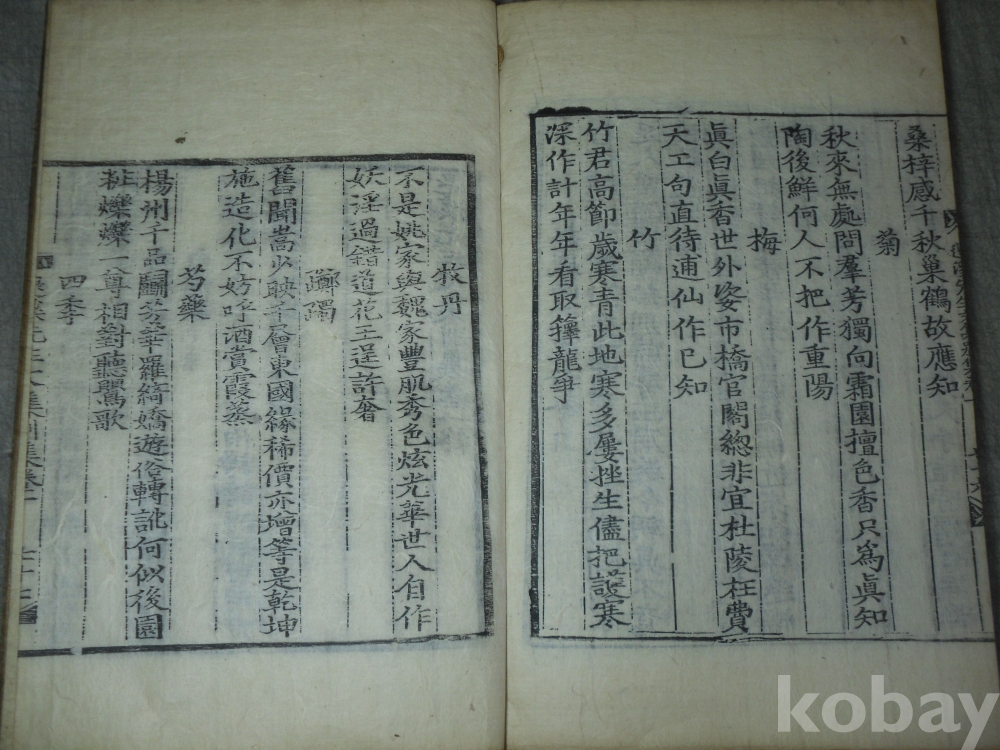 桑梓感千秋巢鶴故應知
菊
秋來無處問羣芳獨向霜園擅色香只爲眞知
陶後鮮何人不把作重陽
梅
眞白眞香世外姿市橋官閣緫非宜杜陵枉費
天工句直待逋仙作已知
竹
竹君高節歲寒青此地寒多屢挫生儘把護寒
深作計年年看取籜龍爭
牧丹
不是姚家與魏家豐肌秀色炫光華世人自作
妖淫過錯道花王逞許奢
躑躅
舊聞嵩少映千層東國緣稀價亦增等是乾坤
施造化不妨呼酒賞霞蒸
芍藥
楊州千品鬪芬華羅綺嬌遊俗轉訛何似後園
粧爍爍一尊相對聽鸎歌
四季
先生文集別集卷一
kobay